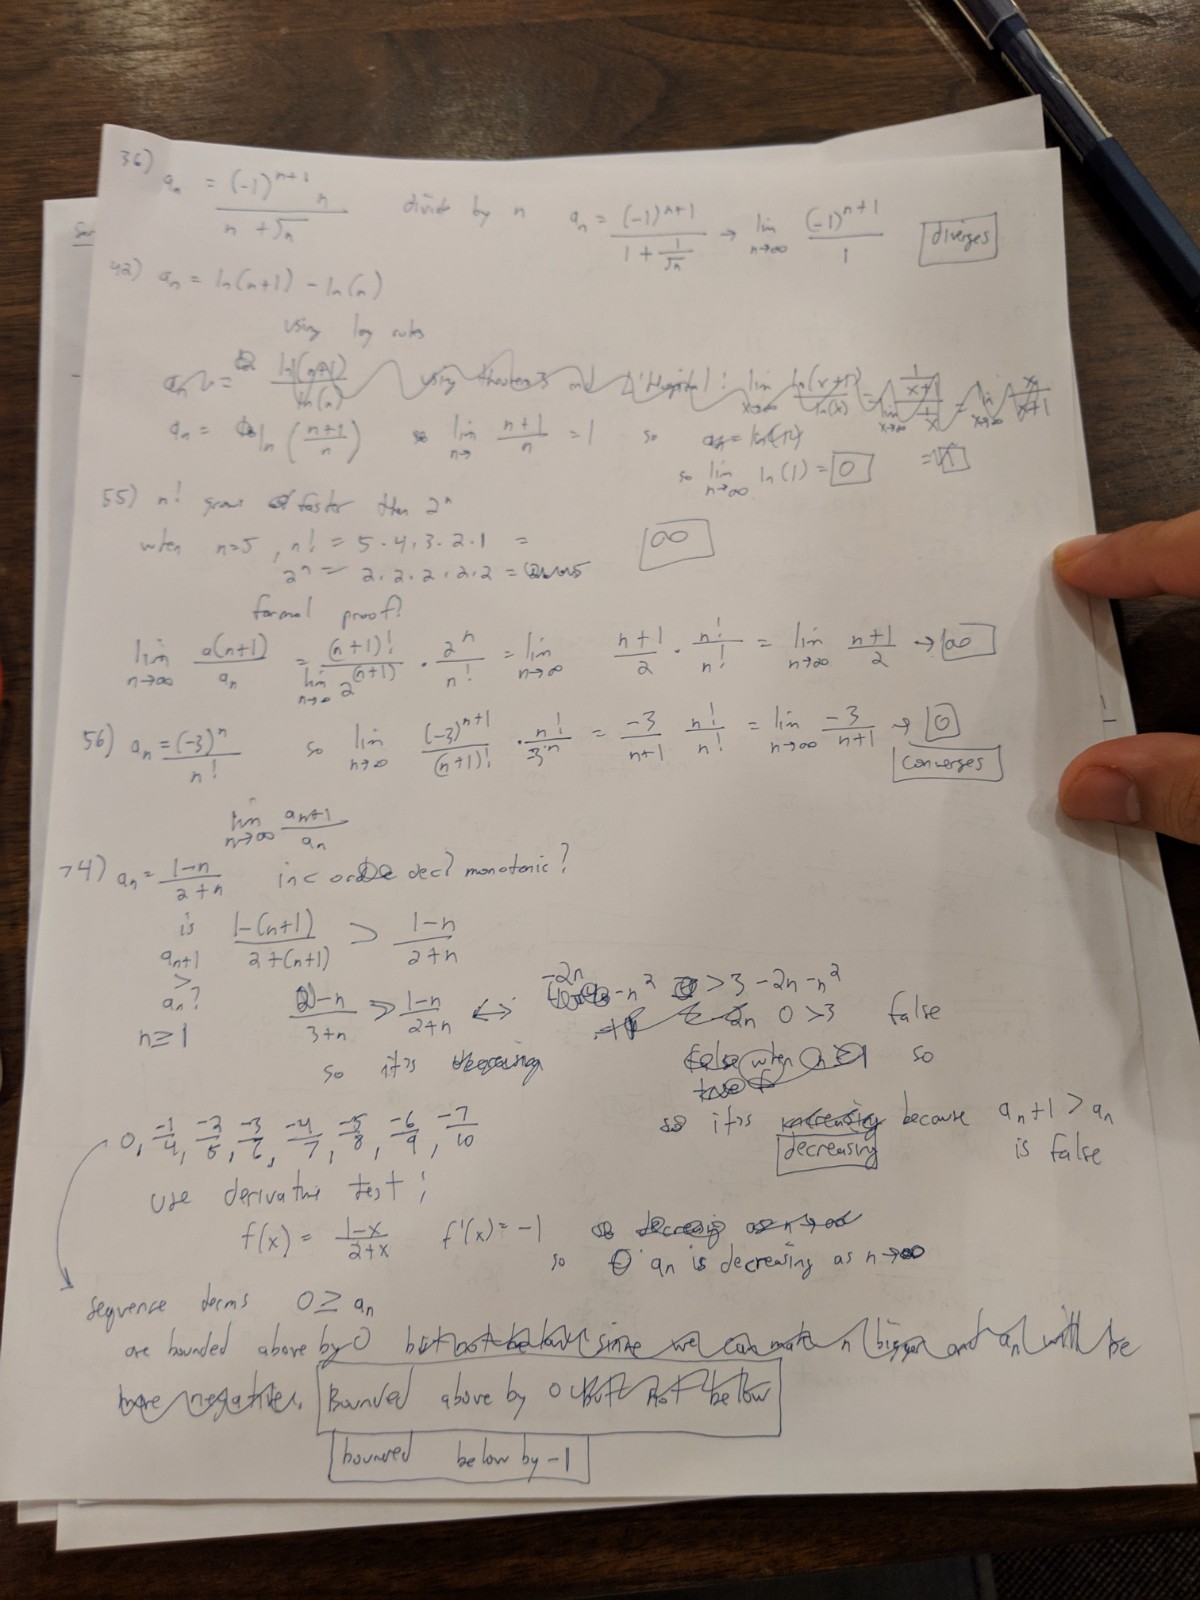 36) a_n = (-1)^{n+1} n / (n + √n) divide by n a_n = (-1)^{n+1} / (1 + 1/√n) → lim n→∞ (-1)^{n+1} / 1 diverges
42) a_n = ln(n+1) - ln(n)
using log rules
a_n = ln(n+1) / ln(n) using theorem 3 and L'Hospital: lim x→∞ ln(x+1) / ln(x) = lim x→∞ (1/(x+1)) / (1/x) = lim x→∞ x / (x+1)
a_n = ln((n+1)/n) so lim n→ (n+1)/n = 1 so
so lim n→∞ ln(1) = 0
55) n! grows faster then 2^n
when n=5, n! = 5·4·3·2·1 = ∞
2^n = 2·2·2·2·2 =
formal proof?
lim n→∞ a(n+1) / a_n = lim n→∞ (n+1)! / 2^{(n+1)} · 2^n / n! = lim n→∞ (n+1)/2 · n!/n! = lim n→∞ (n+1)/2 → ∞
56) a_n = (-3)^n / n! so lim n→∞ (-3)^{n+1} / (n+1)! · n! / 3^n = -3/(n+1) n!/n! = lim n→∞ -3/(n+1) → 0
converges
lim n→∞ a_{n+1} / a_n
74) a_n = (1-n)/(2+n) inc or dec? monotonic?
is (1-(n+1)) / (2+(n+1)) > (1-n)/(2+n)
a_{n+1} > a_n?
n≥1
-n/(3+n) > (1-n)/(2+n) ↔ -2n -n² > 3 -2n -n²
0 >3 false
so it's
false when n ≥ 1 so
so it's increasing because a_n+1 > a_n
decreasing is false
0, -1/4, -2/5, -3/6, -4/7, -5/8, -6/9, -7/10
use derivative test:
f(x) = (1-x)/(2+x) f'(x) = -1 so decreasing as n→∞
so a_n is decreasing as n→∞
sequence terms 0 ≥ a_n
are bounded above by 0 but not below since we can make n bigger and a_n will be
more negative. Bounded above by 0 But Not below
bounded below by -1